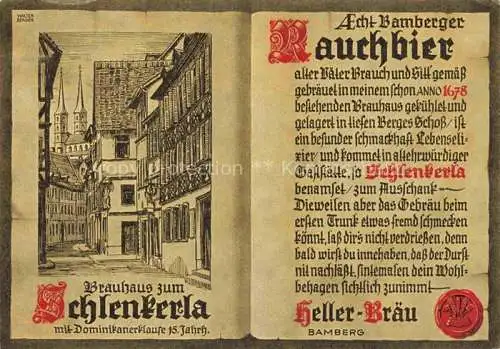 WALTER
BERGER
Brauhaus zum
Schlenkerla
mit Dominikanerklause 15. Jahrh.
Æcht Bamberger
Rauchbier
alter Väter Brauch und Sitt gemäß
gebräuet in meinem schon ANNO 1678
bestehenden Brauhaus gekühlet und
gelagert in tiefen Berges Schoß / ist
ein besunder schmackhaft Lebenseli-
xier / und kommet in altehrwürdiger
Gaststätte, so Schlenkerla
benamset / zum Ausschank —
Dieweilen aber das Gebräu beim
ersten Trunk etwas fremd schmecken
könnt, laß dir's nicht verdrießen, denn
bald wirst du innehaben, daß der Durst
nit nachläßt, sintemalen dein Wohl-
behagen sichtlich zunimmt —
Heller-Bräu
BAMBERG